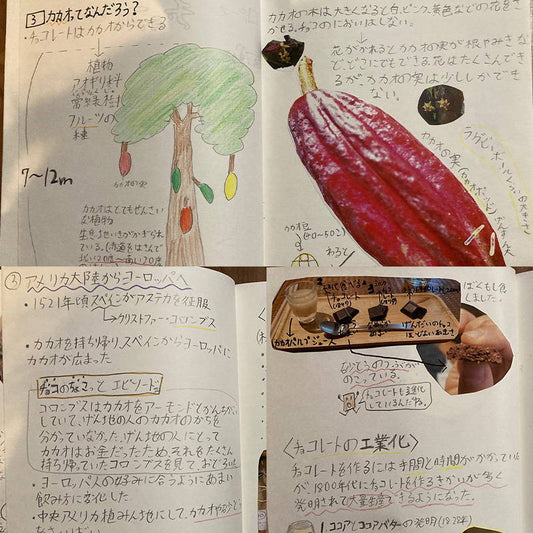 3 カカオってなんだろう？
・チョコレートはカカオからできる
植物
アオギリ科
常緑表樹
フルーツの
種
7〜12m
カカオの実
カカオはとてもせんさい
な植物
生息地いきがかぎられ
ている。(赤道をはさんで
北に20度〜南に20度
カカオの木は大きくなると白、ピンク、黄色などの花を
さかせる。チョコのにおいはしない。
花がかれるとカカオの実が根やみきな
ど、どこにでもできる。花はたくさんでき
るが、カカオの実は少ししかでき
ない。
ラグビーボールくらいの大きさ
カカオの実
カカオ豆
(40〜50こ)
わると
② アメリカ大陸からヨーロッパへ
・1521年頃スペインがアステカを征服
クリストファー・コロンブス
・カカオを持ち帰りスペインからヨーロッパに
カカオが広まった
チョコのちょこっとエピソード
コロンブスはカカオをアーモンドとかんちがい
していて、げん地の人のカカオのかちを
分かっていなかった。げん地の人にとって
カカオはお金だったため、それをたくさん
持ち帰っていたコロンブスを見て、おどろいた
・ヨーロッパ人の好みに合うようにあまい
飲み方に変化した
・中央アメリカ植みん地にして、カカオや
チョコレート
カカオパルプジュース
げんだいのチョコ
ぼくもし食
しました。
さとうのつぶが
のこっている。
チョコレートも進化
しているんだね。
〈チョコレートの工業化〉
チョコレートを作るには手間と時間がかかってい
が、1800年代にチョコレートを作るきかいが多く
発明されて大量生産できるようになった。
1.ココアとココアバターの発明(1828年)